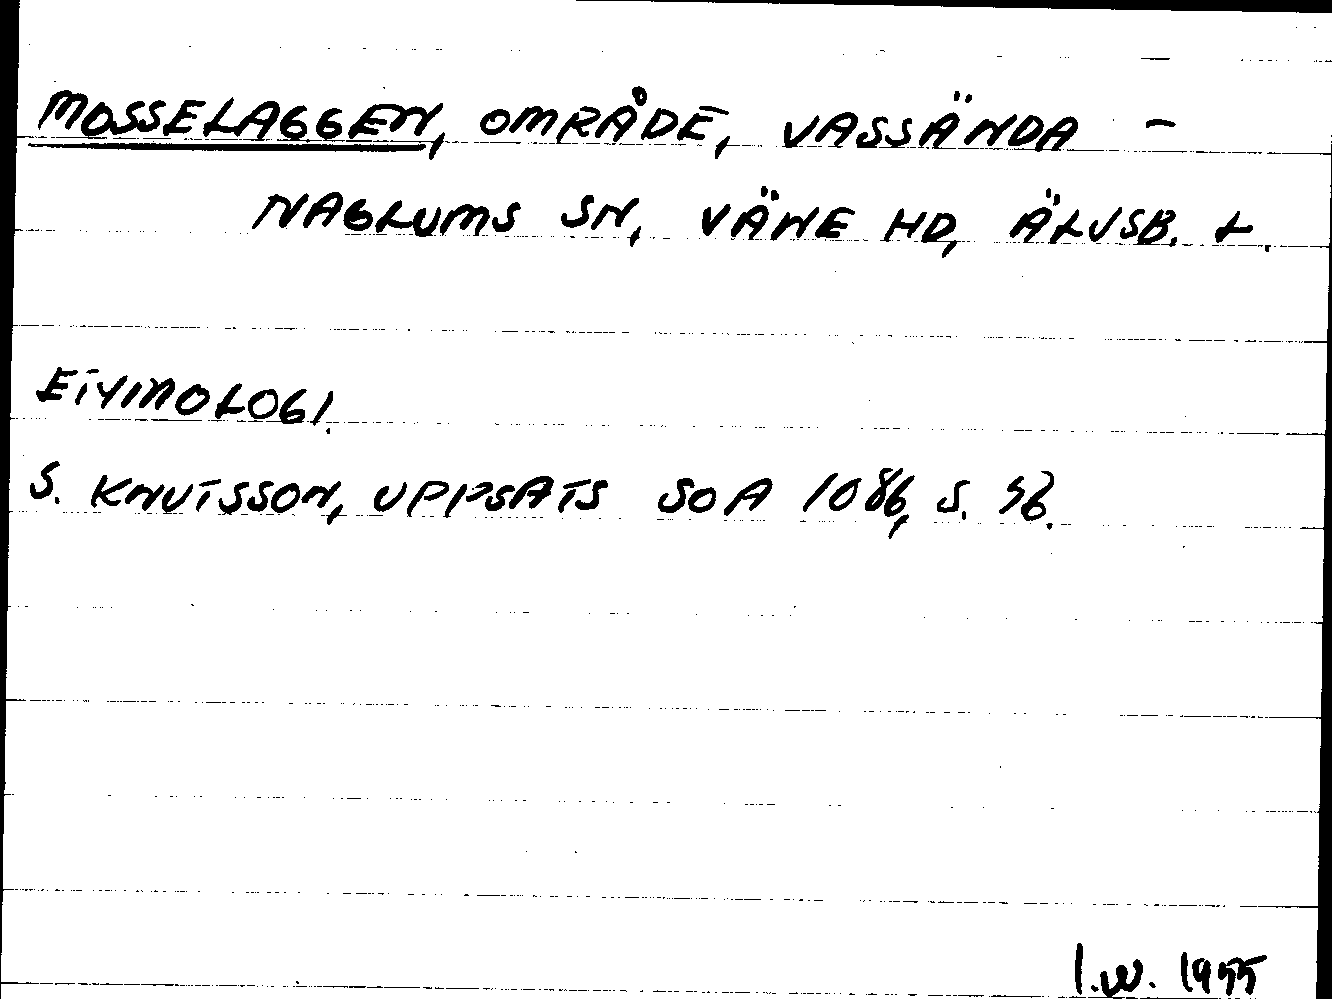 MOSSELAGGEN, OMRÅDE, VASSÄNDA -
NAGLUMS SN, VÄNE HD, ÄLVSB. L.
ETYMOLOGI.
S. KNUTSSON, UPPSATS SOA 1086, S.
I.W. 1955